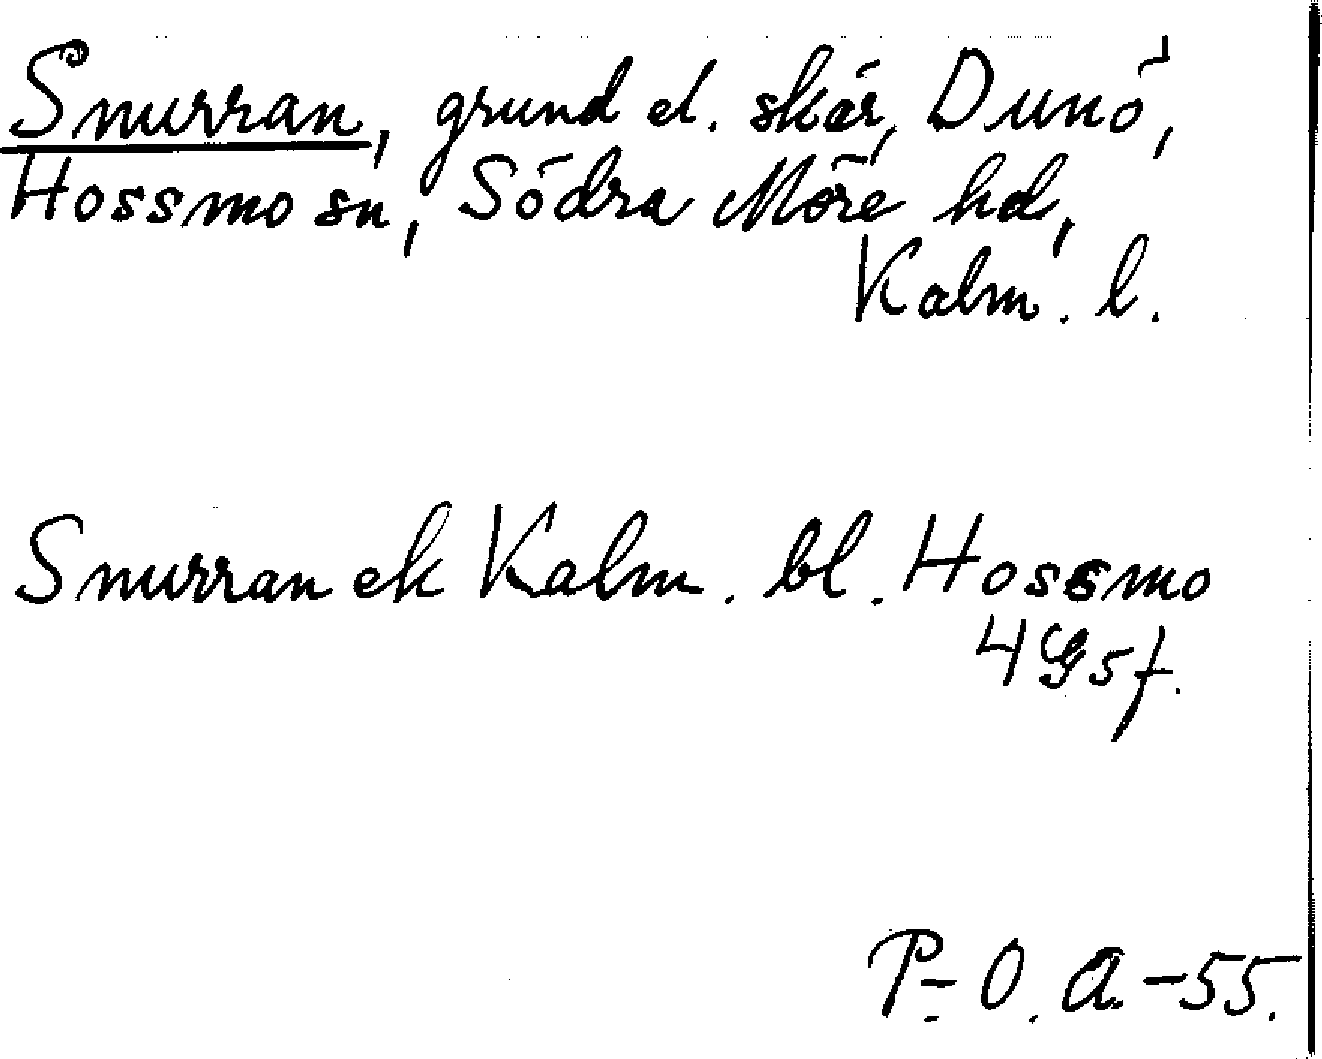 Snurran, grund el. skär, Dunö,
Hossmo sn, Södra Möre hd,
Kalm. l.
Snurran ek Kalm. bl. Hossmo
4G5f.
P-O. A.-55.